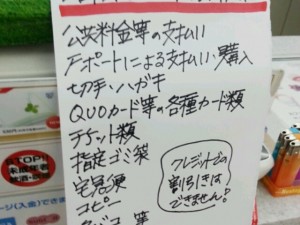 公共料金等の支払い
デポートによる支払い、購入
切手・ハガキ
QUOカード等の各種カード類
チケット類
指定ゴミ袋
宅急便
コピー
タバコ 等
クレジットでの
割引きは
できません!
STOP!!
未成年者